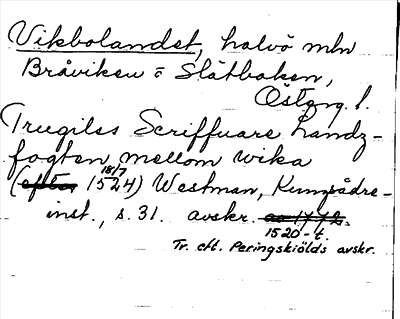 Vikbolandet, halvö mln
Bråviken o Slätbaken,
Östang. l.
Trugilss Scriffuare Landz-
fogten mellom wika
18/7
(efter 1524) Westman, Kunprådre-
inst., s. 31. avskr. av 1772.
1520-t.
Tr. eft. Peringskiölds avskr.